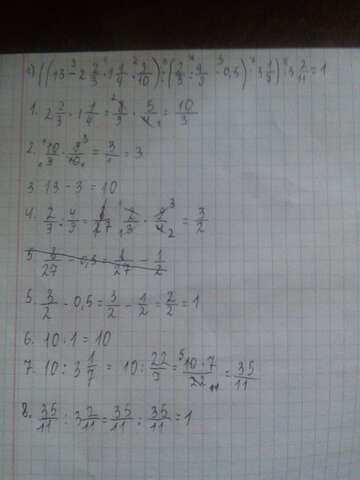 1) ((13 - 2 2/3 · 1 1/4 · 9/10) : (2/3 : 4/9 - 0,5) : 3 1/7) : 3 2/11 = 1
1. 2 2/3 · 1 1/4 = 8/3 · 5/4 = 10/3
2. 10/3 · 9/10 = 3/1 = 3
3. 13 - 3 = 10
4. 2/3 : 4/9 = 8/27 2/3 · 9/4 = 3/2
5 8/27 - 0,5 = 8/27 - 1/2
5. 3/2 - 0,5 = 3/2 - 1/2 = 2/2 = 1
6. 10 : 1 = 10
7. 10 : 3 1/7 = 10 : 22/7 = 10·7/22 = 35/11
8. 35/11 : 3 2/11 = 35/11 : 35/11 = 1